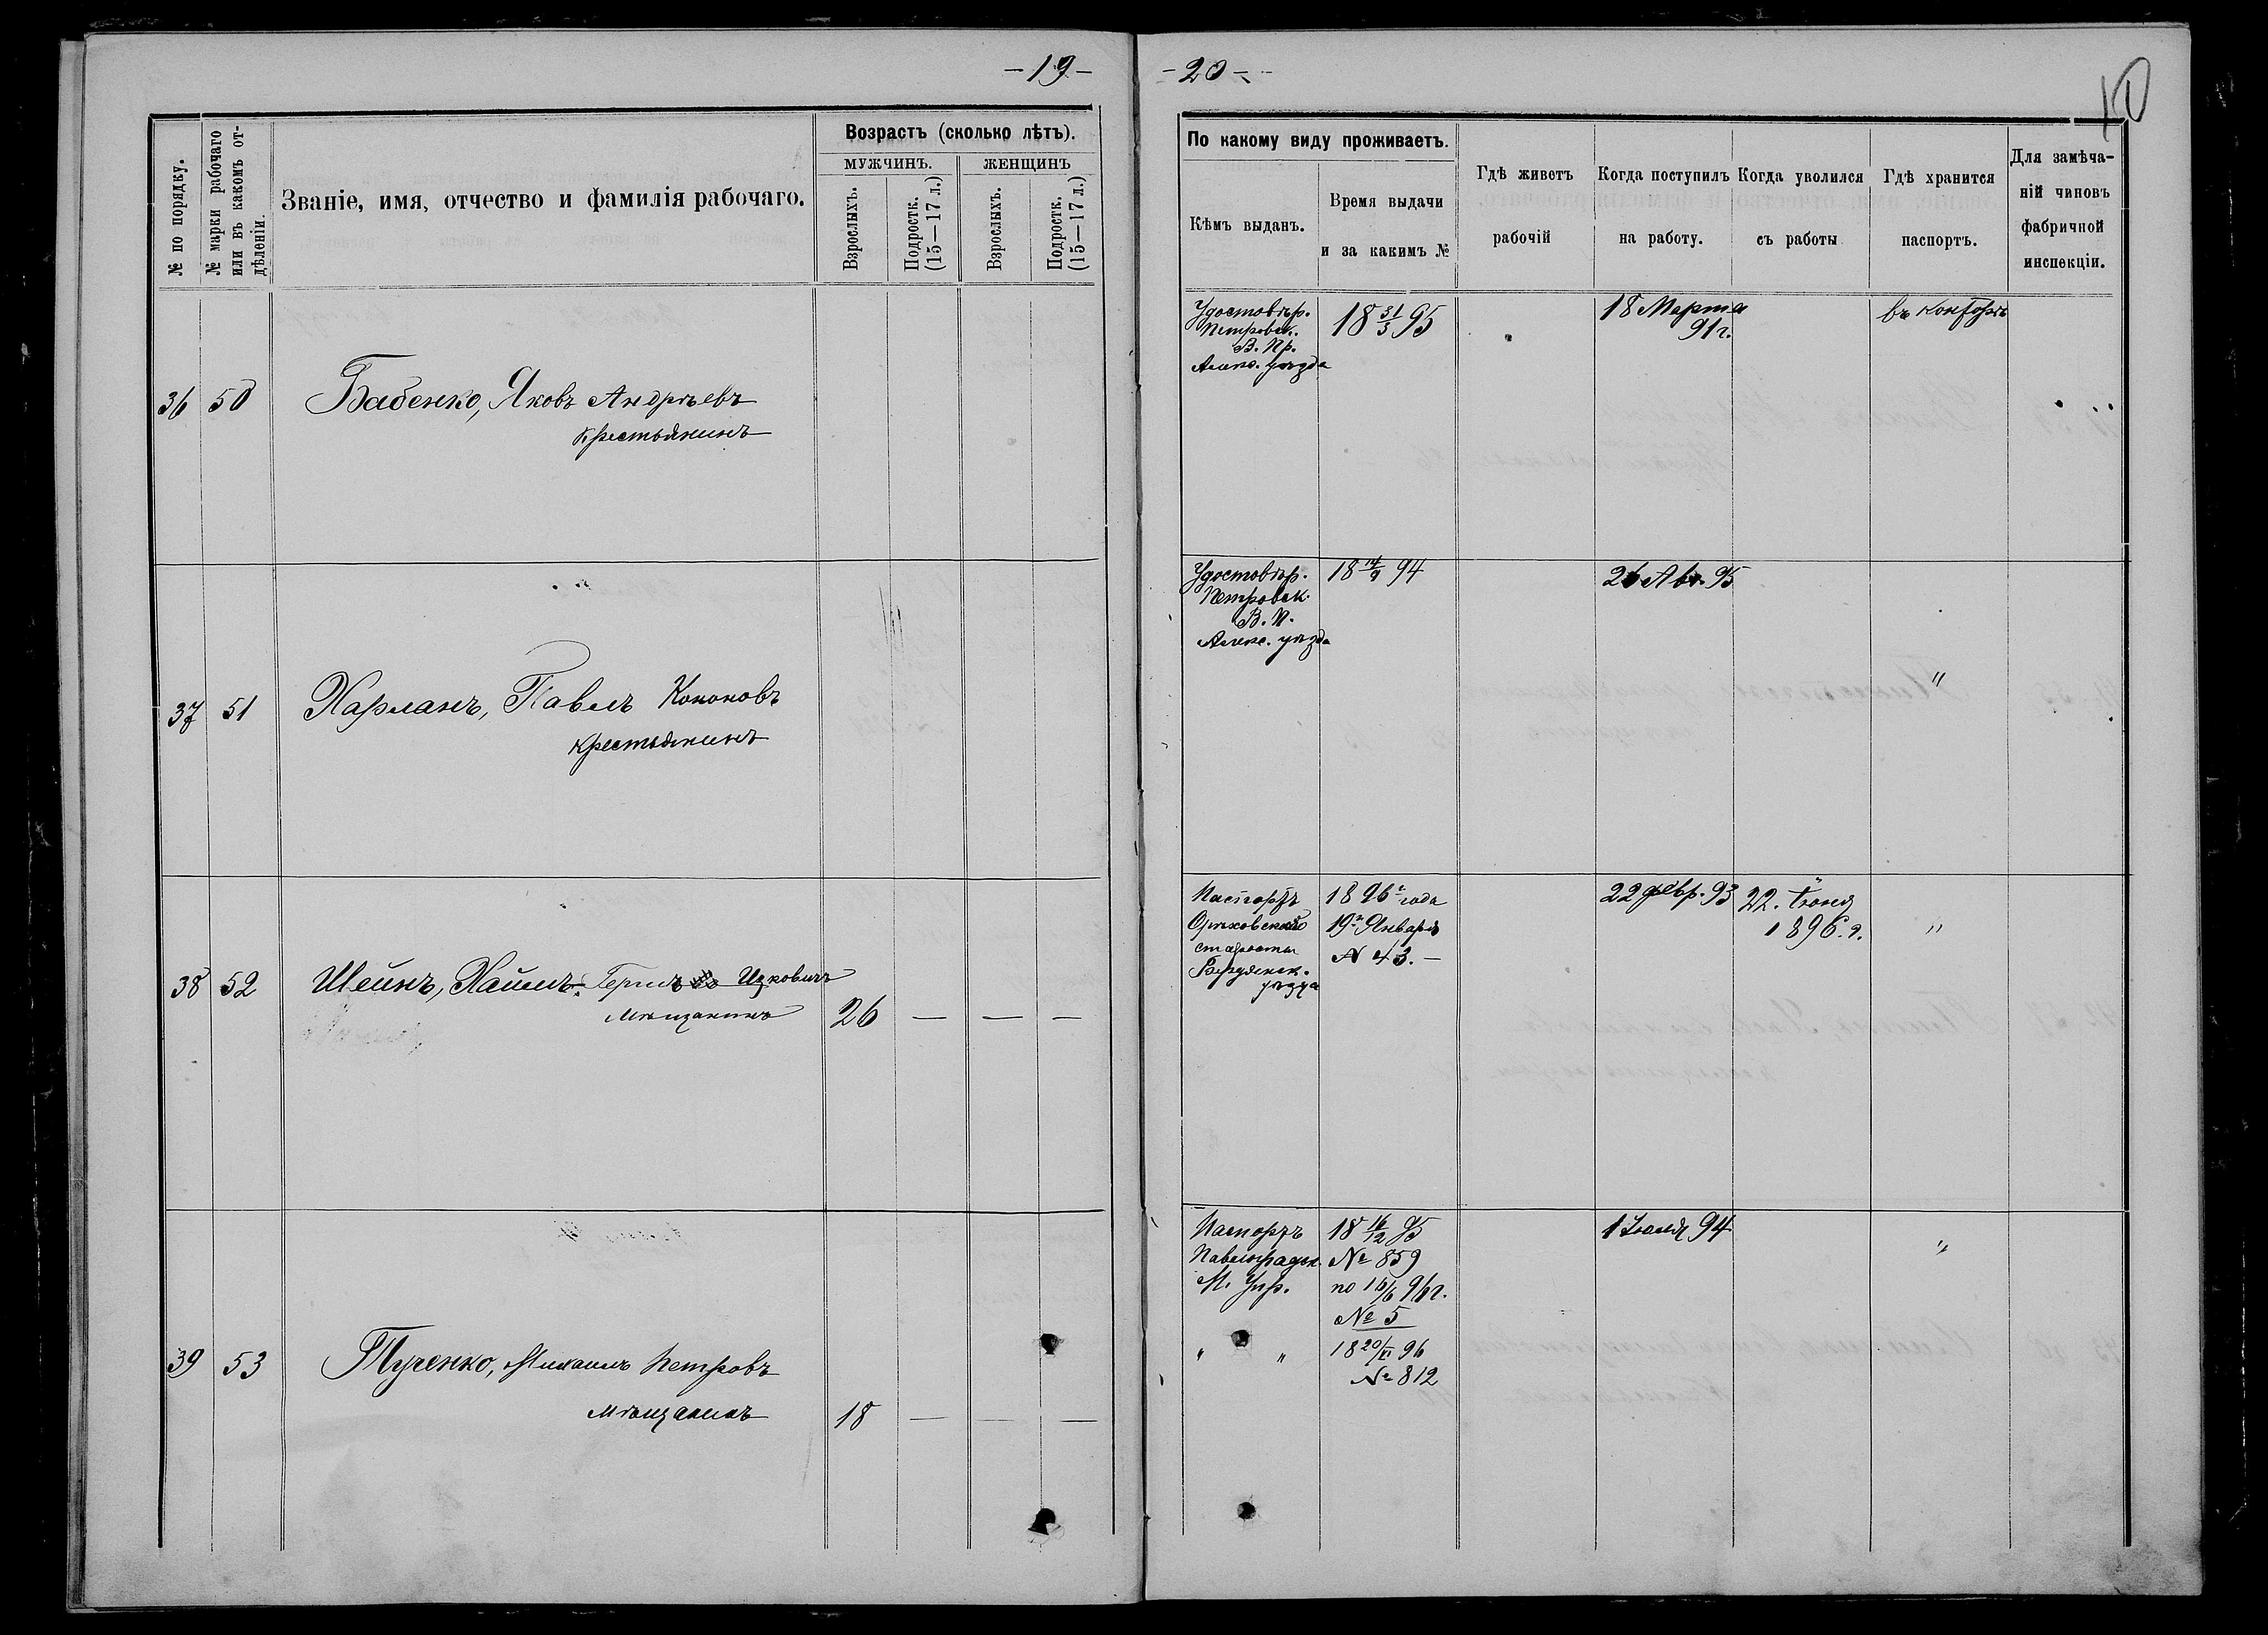 — 19 —
№ по порядку.
№ марки рабочаго или въ какомъ от-
дѣленіи.
Званіе, имя, отчество и фамилія рабочаго.
Возрастъ (сколько лѣтъ).
МУЖЧИНЪ.
ЖЕНЩИНЪ
Взрослыхъ.
Подростк.
(15—17 л.)
Взрослыхъ.
Подростк.
(15—17 л.)
36 50 Бабенко, Яковъ Андрѣевъ
Крестьянинъ
37 51 Харланъ, Павелъ Кононовъ
Крестьянинъ
38 52 Шейнъ, Хаимъ-Гершъ Ицковичъ
Мѣщанинъ 26 — — —
39 53 Тученко, Михаилъ Петровъ
Мѣщанинъ 18 — — —
— 20 —
10
По какому виду проживаетъ.
Кѣмъ выданъ.
Время выдачи
и за какимъ №
Гдѣ живетъ
рабочій
Когда поступилъ
на работу.
Когда уволился
съ работы
Гдѣ хранится
паспортъ.
Для замѣча-
ній чиновъ
фабричной
инспекціи.
Удостовѣр.
Петровск.
В. Пр.
Алекс. уѣзда
18 31/3 95
18 Марта
91 г.
въ конторѣ
Удостовѣр.
Петровск.
В. П.
Алекс. уѣзда
18 14/9 94
26 Авг. 95
"
Паспортъ
Орѣховской
старосты
Бердянск.
уѣзда
1896 г. года
19 Января
№ 43. —
22 февр. 93
22. Іюня
1896. г.
"
Паспортъ
Павлоградск.
М. Упр.
" "
18 16/12 95
№ 859
по 16/6 96 г.
№ 5
18 20/VI 96
№ 812
1 Іюля 94
"